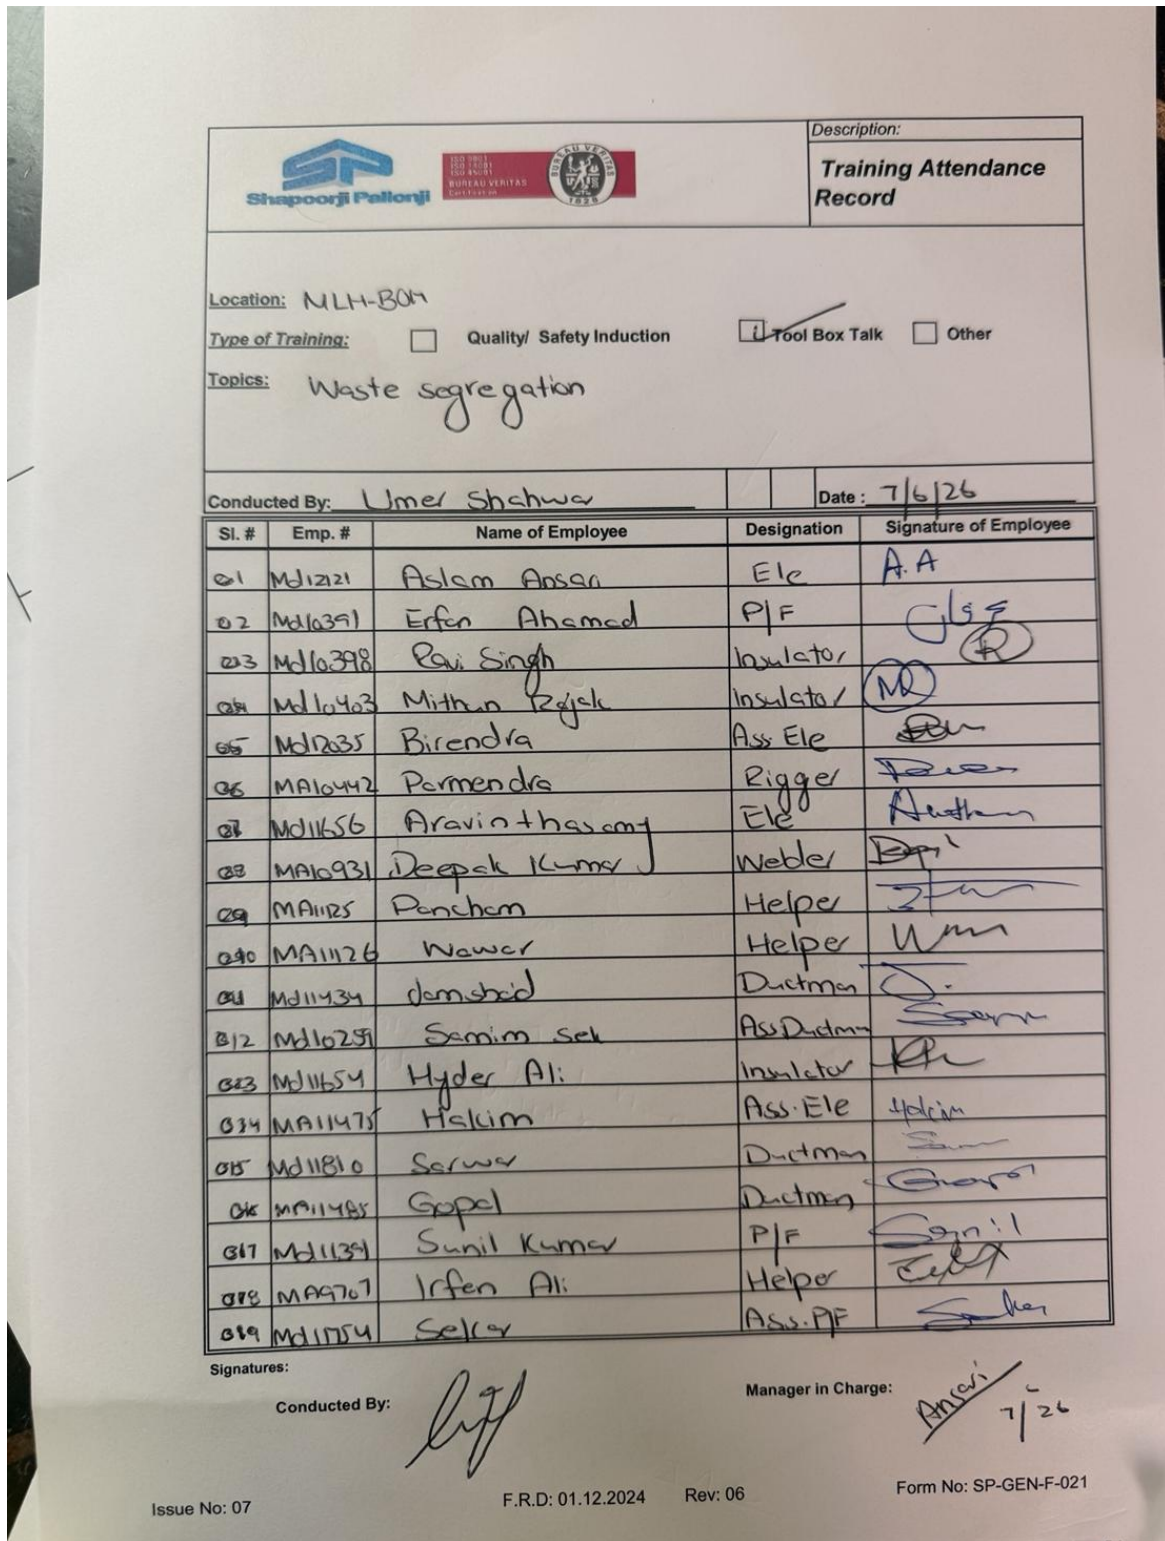 Description:
SP
Shapoorji Pallonji
ISO 9001
ISO 14001
ISO 45001
BUREAU VERITAS
Certification
BUREAU VERITAS
1828
Training Attendance
Record
Location: MLH-BOH
Type of Training: Quality/ Safety Induction Tool Box Talk Other
Topics: Waste segregation
Conducted By: Umer Shahwar Date : 7/6/26
Sl. # Emp. # Name of Employee Designation Signature of Employee
01 Md12121 Aslam Ansari Ele A.A
02 Md10391 Erfan Ahamad P/F
03 Md10398 Ravi Singh Insulator R
04 Md10403 Mithun Rajak Insulator MR
05 Md12035 Birendra Ass Ele
06 MA10442 Parmendra Rigger
07 Md11656 Aravinthasamy Ele
08 MA10931 Deepak Kumar Welder
09 MA11125 Pancham Helper
10 MA11126 Nawar Helper
11 Md11434 Jamshaid Ductman
12 Md10259 Samim Sek Ass Ductman
13 Md11654 Hyder Ali Insulator
14 MA11475 Hakim Ass. Ele Hakim
15 Md11810 Sarwar Ductman
16 MA11485 Gopal Ductman
17 Md11391 Sunil Kumar P/F Sunil
18 MA9707 Irfan Ali Helper
19 Md11754 Sekar Ass. P/F
Signatures:
Conducted By: Manager in Charge: Ansari
Issue No: 07 F.R.D: 01.12.2024 Rev: 06 Form No: SP-GEN-F-021